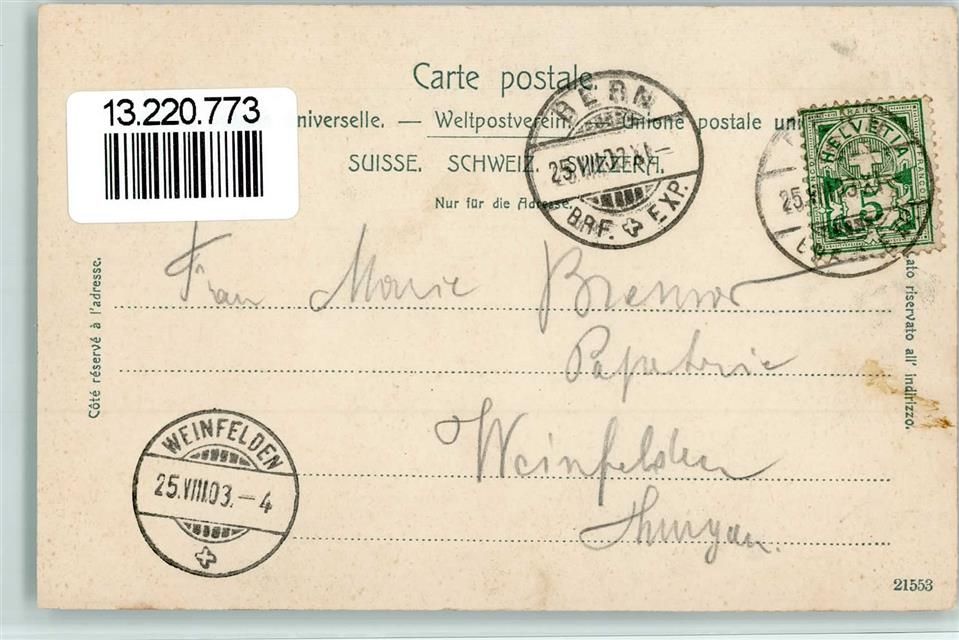 Carte postale.
13.220.773
niverselle. — Weltpostverein. — Unione postale uni
SUISSE. SCHWEIZ. SVIZZERA.
Nur für die Adresse.
BERN
25.VIII.03.XI—
BRF. EXP.
HELVETIA
FRANCO
5
Côté réservé à l'adresse.
ato riservato all' indirizzo.
Frau Marie Brenner
Papeterie
Weinfelden
Thurgau.
WEINFELDEN
25.VIII.03.—4
21553